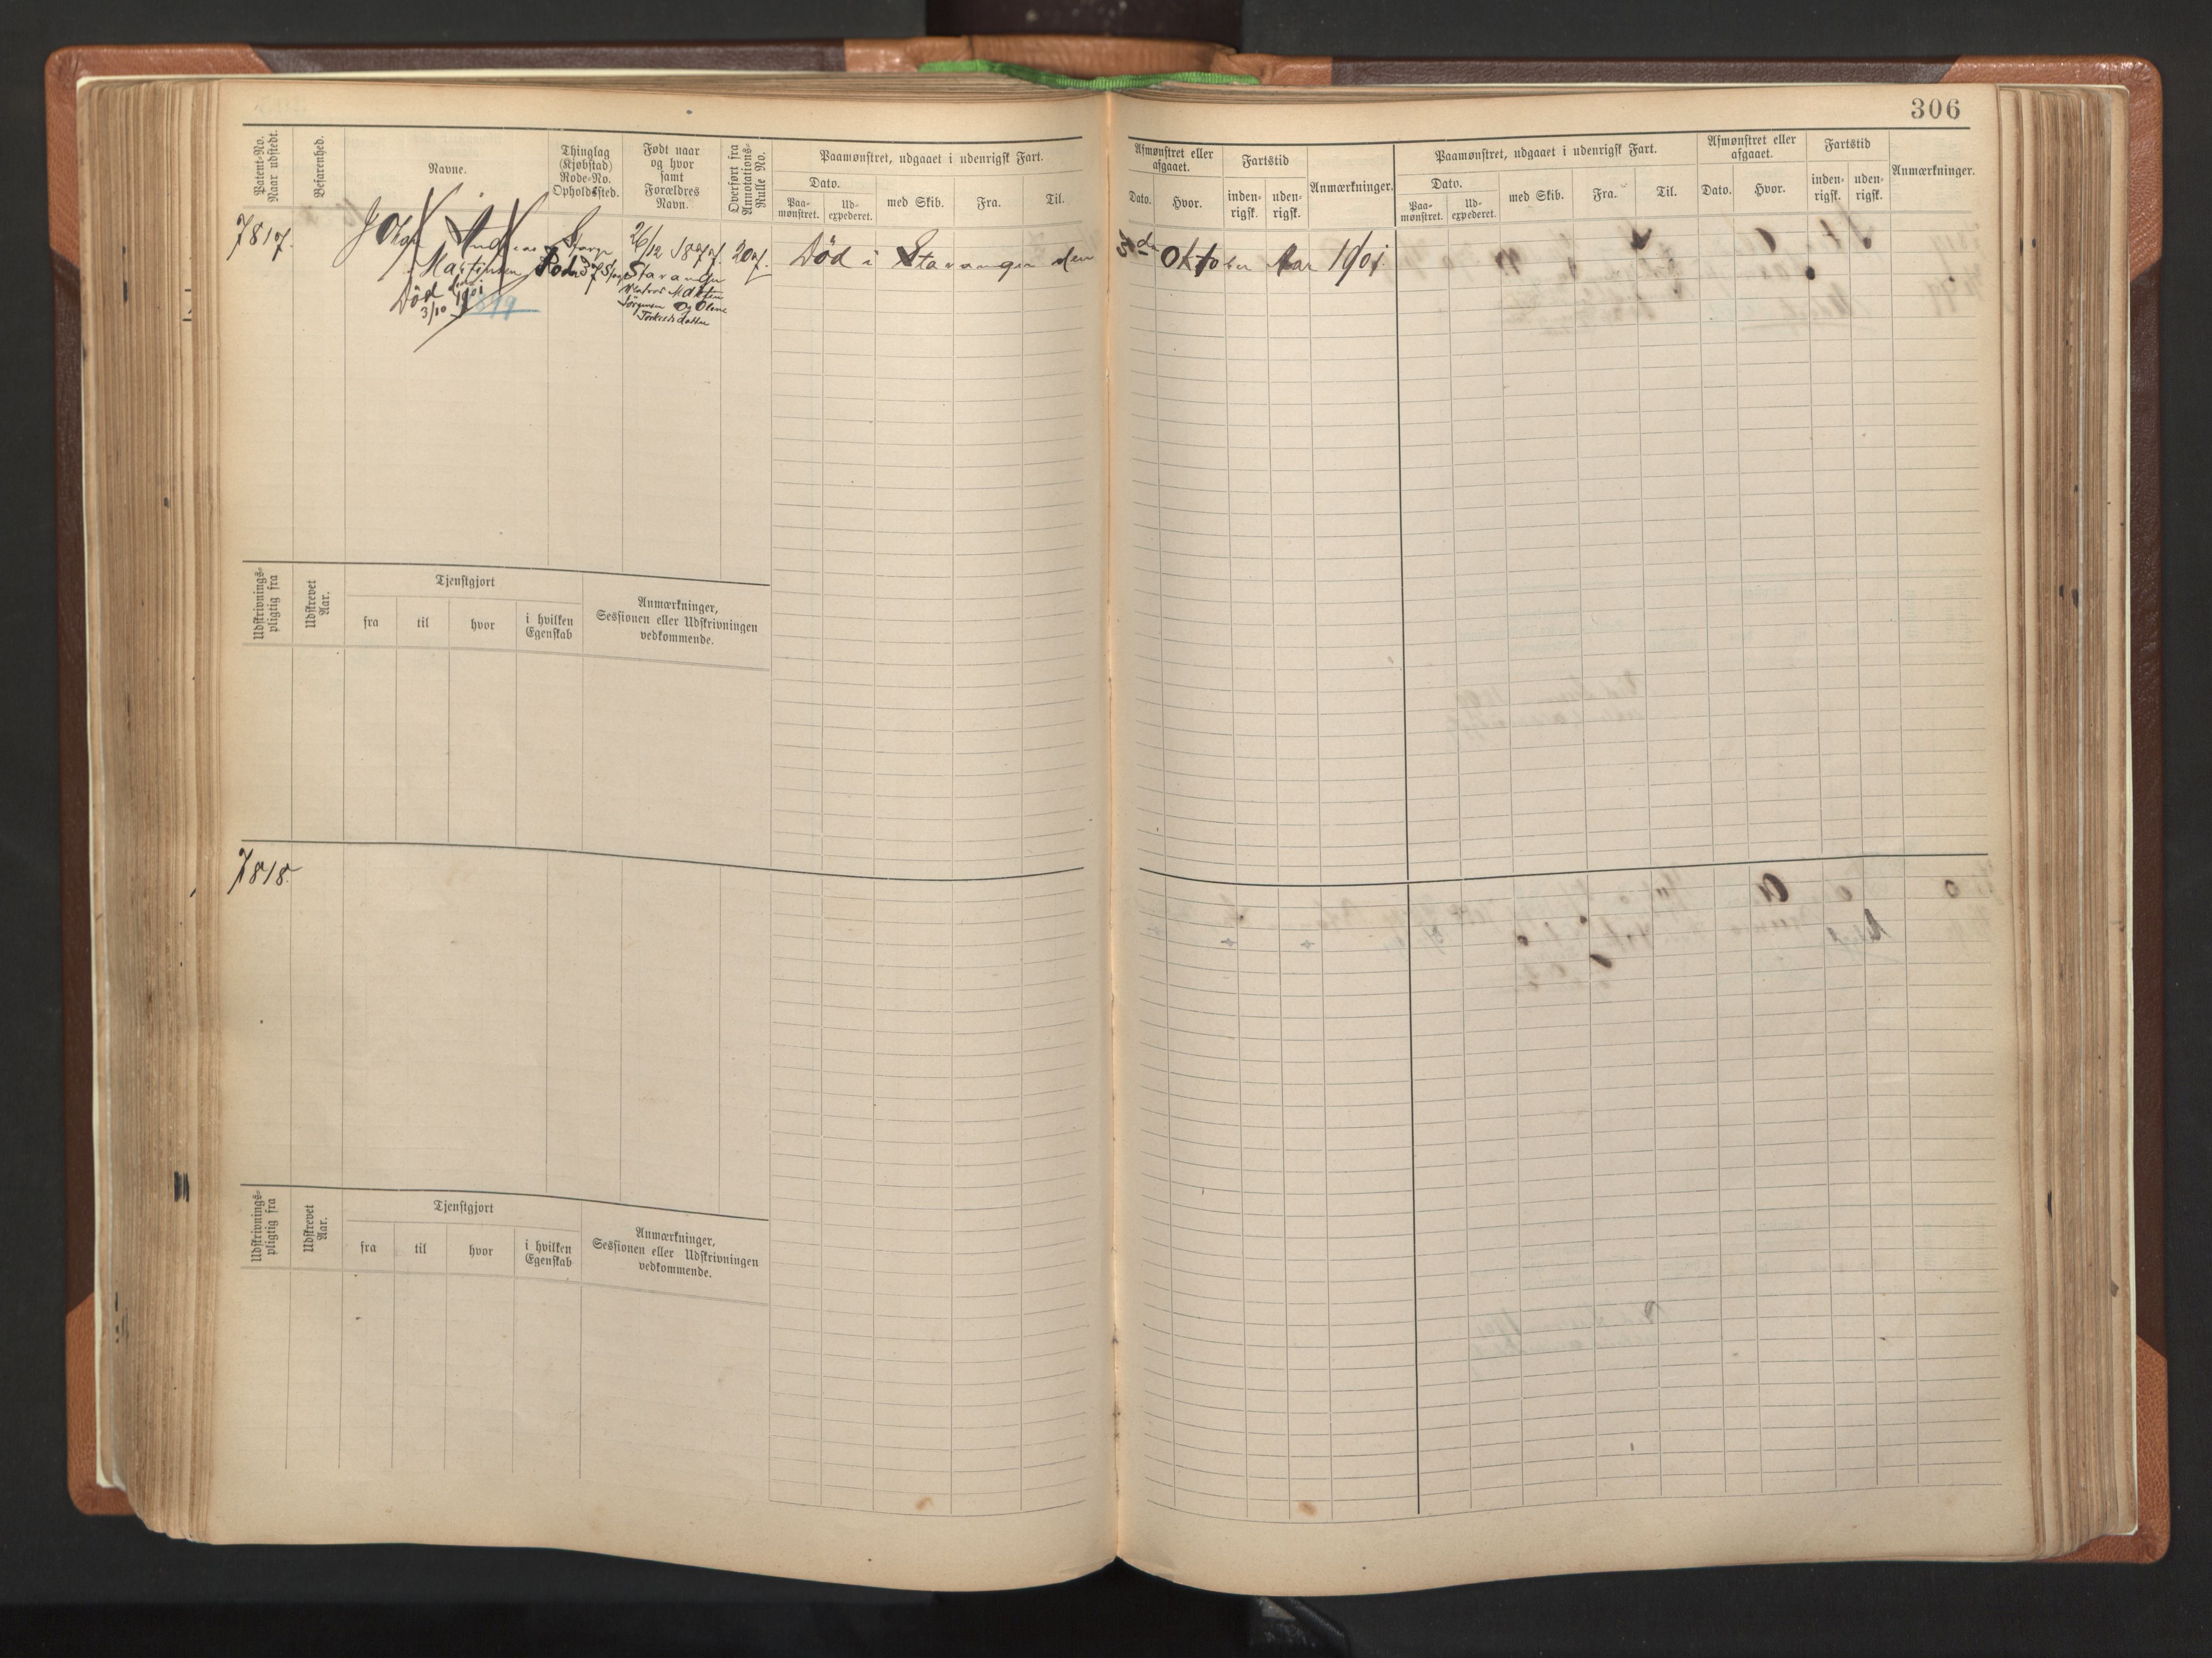 306
Patent-No. Naar udstedt.
Befarenhed.
Navne.
Thinglag (Kjøbstad) Rode-No. Opholdssted.
Født naar og hvor samt Forældres Navn.
Overført fra Annotations-Rulle No.
Paamønstret, udgaaet i udenrigsk Fart.
Dato.
Paa-mønstret.
Ud-expederet.
med Skib.
Fra.
Til.
Afmønstret eller afgaaet.
Dato.
Hvor.
Fartstid
inden-rigsk.
uden-rigsk.
Anmærkninger.
Paamønstret, udgaaet i udenrigsk Fart.
Dato.
Paa-mønstret.
Ud-expederet.
med Skib.
Fra.
Til.
Afmønstret eller afgaaet.
Dato.
Hvor.
Fartstid
inden-rigsk.
uden-rigsk.
Anmærkninger.
7817.
Andreas
Martinsen
Død
3/10 1901
26/12 1877.
Stavanger
Martin
Olene
207.
Død i Stavanger den
Oktober Aar 1901
Udskrivnings-pligtig fra
Udskrevet Aar.
Tjenstgjort
fra
til
hvor
i hvilken Egenskab
Anmærkninger,
Sessionen eller Udskrivningen
vedkommende.
7818.
Udskrivnings-pligtig fra
Udskrevet Aar.
Tjenstgjort
fra
til
hvor
i hvilken Egenskab
Anmærkninger,
Sessionen eller Udskrivningen
vedkommende.